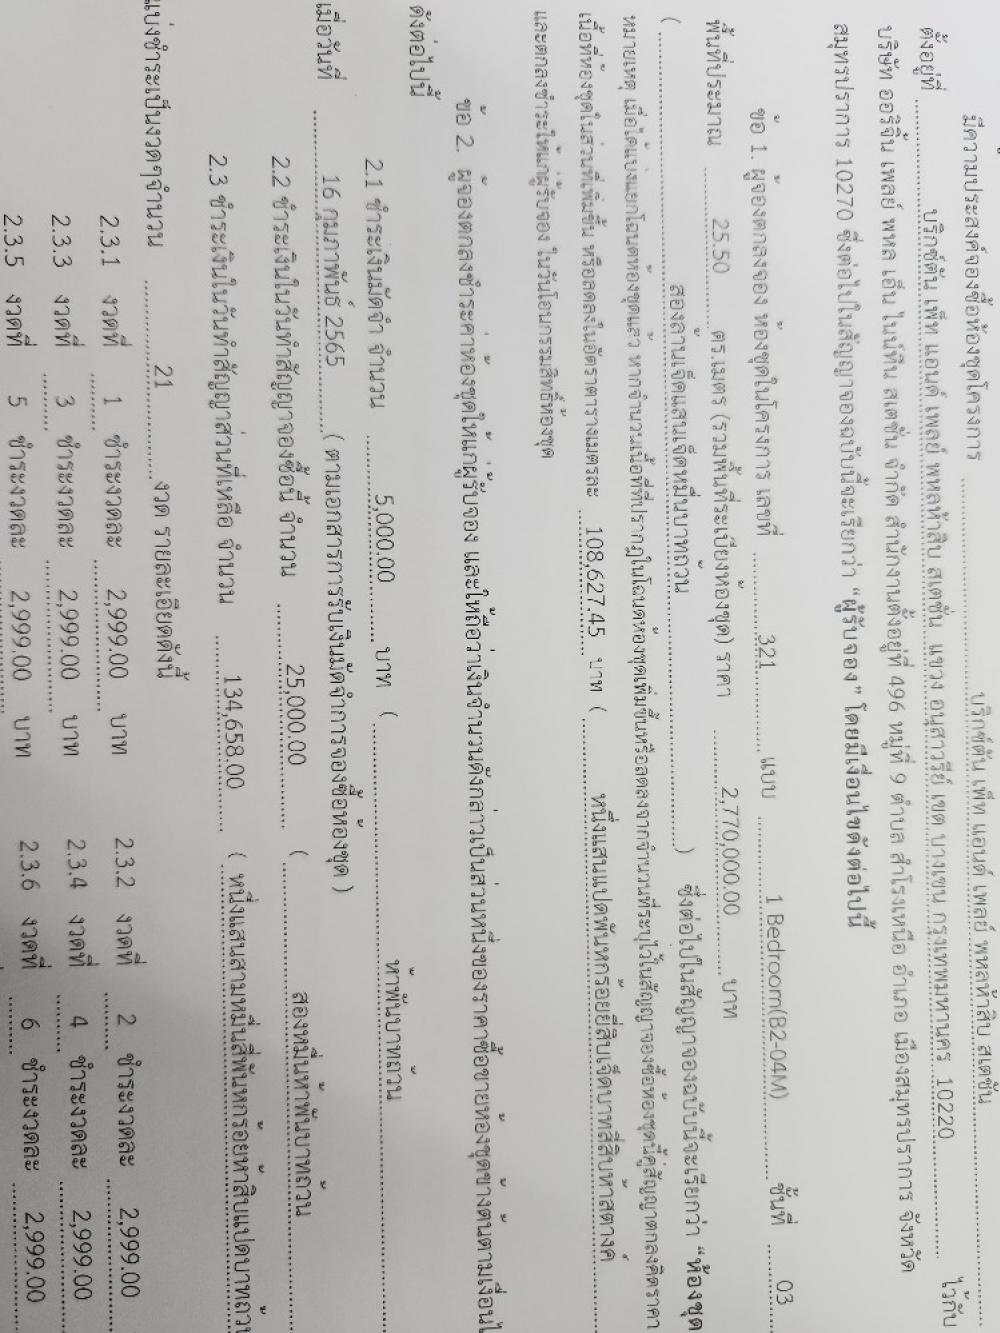 มีความประสงค์จองซื้อห้องชุดโครงการ ........ บริกซ์ตัน เพ็ท แอนด์ เพลย์ พหลห้าสิบ สเตชั่น
ตั้งอยู่ที่ ........ บริกซ์ตัน เพ็ท แอนด์ เพลย์ พหลห้าสิบ สเตชั่น แขวง อนุสาวรีย์ เขต บางเขน กรุงเทพมหานคร 10220 ........ ไว้กับ
บริษัท ออริจิ้น เพลย์ พหล เอ็น ไนน์ทีน สเตชั่น จำกัด สำนักงานตั้งอยู่ที่ 496 หมู่ที่ 9 ตำบล สำโรงเหนือ อำเภอ เมืองสมุทรปราการ จังหวัด
สมุทรปราการ 10270 ซึ่งต่อไปในสัญญาจองฉบับนี้จะเรียกว่า “ผู้รับจอง” โดยมีเงื่อนไขดังต่อไปนี้
ข้อ 1. ผู้จองตกลงจอง ห้องชุดในโครงการ เลขที่ ........ 321 ........ แบบ ........ 1 Bedroom(B2-04M) ........ ชั้นที่ ........ 03
พื้นที่ประมาณ ........ 25.50 ........ ตร.เมตร (รวมพื้นที่ระเบียงห้องชุด) ราคา ........ 2,770,000.00 ........ บาท
( ........ สองล้านเจ็ดแสนเจ็ดหมื่นบาทถ้วน ........ ) ซึ่งต่อไปในสัญญาจองฉบับนี้จะเรียกว่า “ห้องชุด
หมายเหตุ เมื่อได้แบ่งแยกโฉนดห้องชุดแล้ว หากจำนวนเนื้อที่ที่ปรากฏในโฉนดห้องชุดเพิ่มขึ้นหรือลดลงจากจำนวนที่ระบุไว้ในสัญญาจองซื้อห้องชุดนี้คู่สัญญาตกลงคิดราคา
เนื้อที่ห้องชุดในส่วนที่เพิ่มขึ้น หรือลดลงในอัตราตารางเมตรละ ........ 108,627.45 ........ บาท ( ........ หนึ่งแสนแปดพันหกร้อยยี่สิบเจ็ดบาทสี่สิบห้าสตางค์
และตกลงชำระให้แก่ผู้รับจอง ในวันโอนกรรมสิทธิ์ห้องชุด
ข้อ 2. ผู้จองตกลงชำระค่าห้องชุดให้แก่ผู้รับจอง และให้ถือว่าเงินจำนวนดังกล่าวเป็นส่วนหนึ่งของราคาซื้อขายห้องชุดข้างต้นตามเงื่อนไ
ดังต่อไปนี้
2.1 ชำระเงินมัดจำ จำนวน ........ 5,000.00 ........ บาท ( ........ ห้าพันบาทถ้วน
เมื่อวันที่ ........ 16 กุมภาพันธ์ 2565 ........ ( ตามเอกสารการรับเงินมัดจำการจองซื้อห้องชุด )
2.2 ชำระเงินในวันทำสัญญาจองซื้อนี้ จำนวน ........ 25,000.00 ........ ( ........ สองหมื่นห้าพันบาทถ้วน
2.3 ชำระเงินในวันทำสัญญาส่วนที่เหลือ จำนวน ........ 134,658.00 ........ ( หนึ่งแสนสามหมื่นสี่พันหกร้อยห้าสิบแปดบาทถ้ว
แบ่งชำระเป็นงวดๆจำนวน ........ 21 ........ งวด รายละเอียดดังนี้
2.3.1 งวดที่ ........ 1 ชำระงวดละ ........ 2,999.00 บาท 2.3.2 งวดที่ ........ 2 ชำระงวดละ ........ 2,999.00
2.3.3 งวดที่ ........ 3 ชำระงวดละ ........ 2,999.00 บาท 2.3.4 งวดที่ ........ 4 ชำระงวดละ ........ 2,999.00
2.3.5 งวดที่ ........ 5 ชำระงวดละ ........ 2,999.00 บาท 2.3.6 งวดที่ ........ 6 ชำระงวดละ ........ 2,999.00